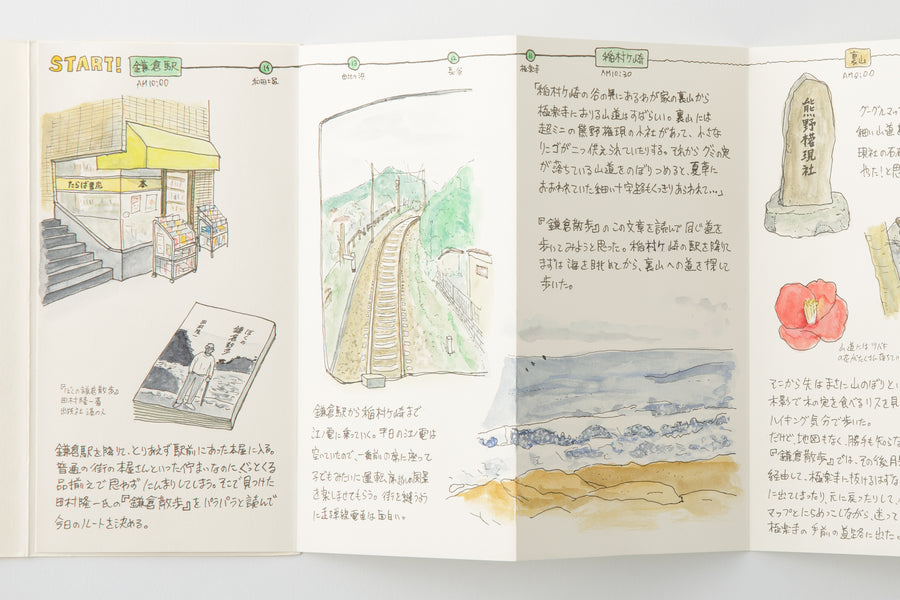 START!
鎌倉駅
AM10:00
和田塚
由比ヶ浜
長谷
極楽寺
稲村ケ崎
AM10:30
裏山
たらば書店
本
ぼくの
鎌倉散歩
田村隆一
『ぼくの鎌倉散歩』
田村隆一著
出版社 港の人
鎌倉駅を降りて、とりあえず駅前にあった本屋に入る。
普通の街の本屋さんといった佇まいなのに、ぐっとくる
品揃えで思わずたんまりしてしまう。そこで見つけた
田村隆一氏の『鎌倉散歩』をパラパラと読んで
今日のルートを決める。
鎌倉駅から稲村ケ崎まで
江ノ電に乗っていく。平日の江ノ電は
空いていたので、一番前の席に座って
子どもみたいに運転席越しの風景
を楽しませてもらう。街を縫うよう
に走る路線電車は面白い。
「稲村ケ崎の谷の奥にあるわが家の裏山から
極楽寺におりる山道はすばらしい。裏山には
超ミニの熊野権現の小社があって、小さな
リンゴが二つ供えられていたりする。それからグミの実
が落ちている山道をのぼりつめると、夏草に
おおわれていた細い十字路もくっきりあらわれて…」
『鎌倉散歩』のこの文章を読んで同じ道を
歩いてみようと思った。稲村ケ崎の駅を降りて
まずは海を眺めてから、裏山への道を探して
歩いた。
熊野権現社
グーグルマッ
細い山道を
現社の石
やた！と思
山道にはツバキ
の花がたくさん落ちてい
そこから先はまさに山のぼりとい
木影で木の実を食べるリスを見
ハイキング気分で歩いた。
だけど、地図もなく、勝手も知らな
『鎌倉散歩』では、その後月
経由して、極楽寺に抜けるはずな
に出てしまったり、元に戻ったりして、
マップとにらめっこしながら、迷って
極楽寺の手前の道路に出た。